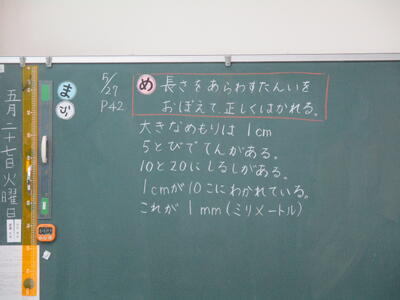 五月二十七日火曜日
ま
5/27
P42
め 長さをあらわすたんいを
おぼえて、正しくはかれる。
大きなめもりは1cm
5とびでてんがある。
10と20にしるしがある。
1cmが10こにわかれている。
これが1mm(ミリメートル)